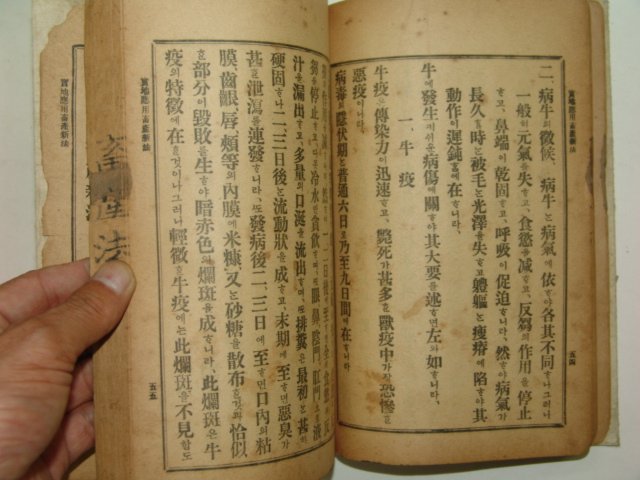 實地應用畜產新法
五四
二、病牛의徵候、病牛는病氣에依하야各其不同하나그러나
一般히元氣를失하고、食慾을減하고、反芻의作用을停止
하고、鼻端이乾固하고、呼吸이促迫하나니라、然하야病氣가
長久한時는被毛는光澤을失하고軆軀는瘦瘠에陷하야其
動作이遲鈍함에在하니라、
牛에發生키쉬운病傷에關하야其大要를述하면左와如하니라、
一、牛疫
牛疫은傳染力이迅速하고、斃死가甚多한獸疫中가장恐慘한
惡疫이니라、
病毒의隱伏期는普通六日로乃至九日間에在하니라
汁을漏出하고、多量의口涎을流出하며、또排糞은最初는甚히
硬固하나二、三日後는流動狀을成하고、末期에至하면惡臭가
甚한泄瀉를連發하나니라、또發病後二、三日에至하면口內의粘
膜、齒齦、唇、頰等의內膜에米糠、又는砂糖을散布한것과恰似
한部分이毁敗를生하야暗赤色의爛斑을成하나니라、此爛斑은牛
疫의特徵에在한것이나그러나輕微한牛疫에는此爛斑을不見함도
實地應用畜產新法
五五